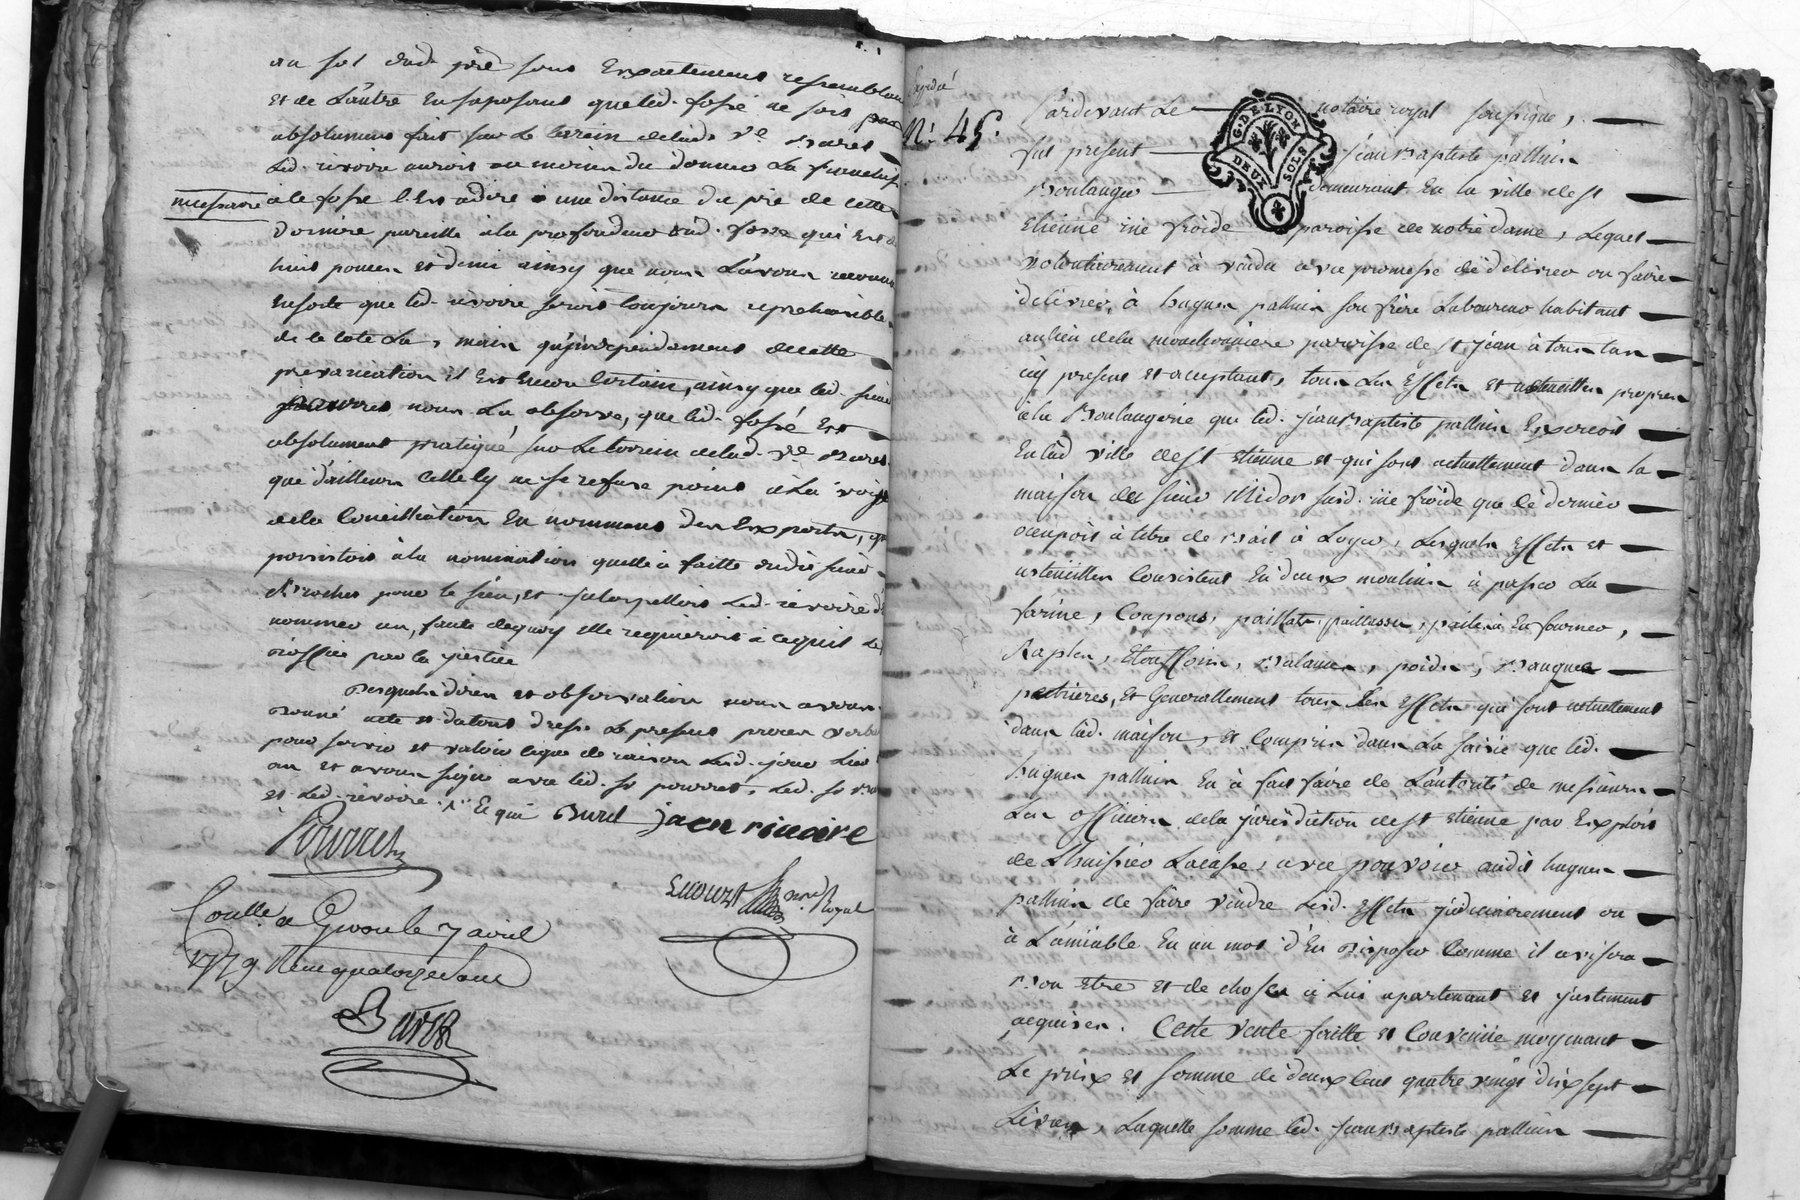 au sol dud. pré sont Exactement ressemblan
et de L'autre En suposant que led. fossé ne soit pas
absolument fait sur Le terrein delad. Ve Baret
Led. revoire auroit au moins du donner La
necessaire a le fosse C'Est adire a une distance du pré de cette
derniere pareille à la profondeur dud. fosse qui Est de
huit pouces et demi ainsy que nous L'avons reconnu
Ensorte que led. revoire seroit toujours reprehensible
de le cote La, mais qu'independament de cette
prevarication il Est Encor Certain, ainsy que led. sieur
pourret nous La observé, que led. fossé Est
absolument pratiqué sur Le terrein delad. Ve Baret
que d'ailleurs Celle Cy ne se refuse point à La voye
dela Conciliation En nommant des Experts, qu
persistoit à la nomination quelle a faitte dudit sieur
Desroches pour le sien, et Interpelloit Led. revoire d'E
nommer un, faute dequoy elle requieroit à ce quil
d'office par la justice
Desquels dires et observation nous avons
Donné acte et du tout dressé Le present proces verbal
pour servir et valoir ce que de raison Lesd. jour Lieu
an et avons signé avec led. sr pourret, Led. sr
et Led. revoire. Burel jaen rivoire
Pourret
Royal
Conllé a Givou le 7 avril
1779 Reçu quatorze sous
Burel
Expedié
N: 45.
Pardevant Le notaire royal soussigné,
G. DE LYON DEUX SOLS
fut present jean Baptiste palluis
Boulanger demeurant En la ville de st
Etienne rüe froide paroisse de notre dame, Lequel
volontairement à vendu avec promesse de delivrer ou faire
delivrer, à hugues palluis son frère Laboureur habitant
au lieu dela paroisse de st jean à tous Las
icy present et acceptant, tous Les Effets et ustencilles propres
à la Boulangerie que led. jean Baptiste palluis Exercoit
En lad ville de st Etienne et qui sont actuellement dans la
maison du sieur Midor susd. rüe froide que le dernier
occupoit à titre de Bail à Loyer, Lesquels Effets et
ustencilles Consistent En deux moulins à passer La
farine, Coupons, paillats, paillasses, pailes à En fourner,
Raples, Etouffoirs, Balances, poids, Banques
petrieres, Et Generallement tous Les Effets qui sont actuellement
dans lad. maison, et Compris dans La saisie que led.
hugues palluis En à fait faire de L'autorité de messieurs
Les officiers dela jurisdiction de st Etienne par Exploit
de L'huissier Lacasse, avec pouvoir audit hugues
palluis de faire vendre Lesd. Effets judiciairement ou
à L'amiable En un mot d'En Disposer Comme il avisera
Bon Etre et de choses à Lui apartenant et justement
acquises. Cette vente faitte et Convenüe moyenant
Le prix et somme de deux Cent quatre vingt dix sept
Livres, Laquelle somme led. jean Baptiste palluis